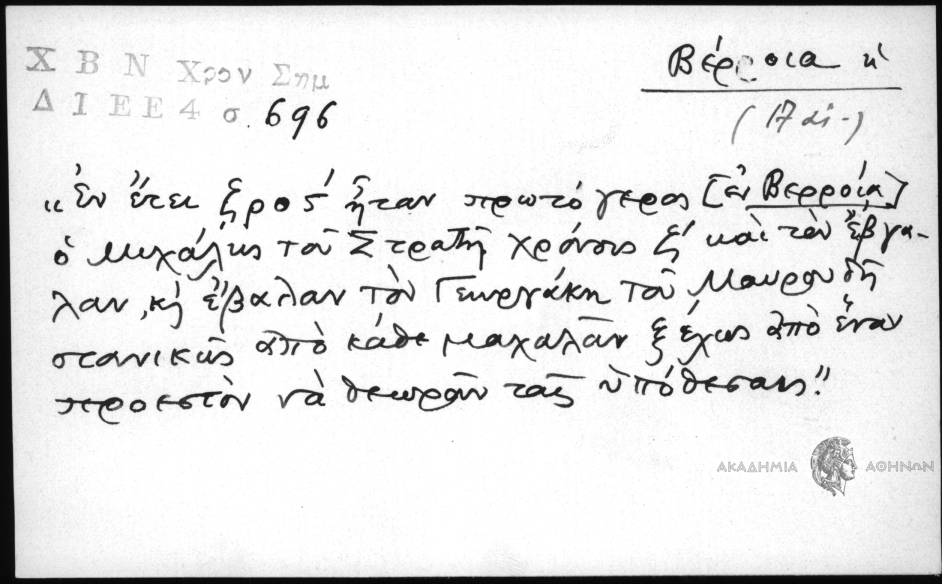 Χ Β Ν Χρον Σημ
Δ Ι Ε Ε 4 σ. 696
Βέρροια κ'
(17 αι.)
"ἐν ἔτει ζρος' ἦταν πρωτόγερος [ἐν Βερροίᾳ]
ὁ Μιχάλης τοῦ Στρατῆ χρόνους ξ' καὶ τὸν ἔβγα-
λαν, κὴ ἔβαλαν τὸν Γεωργάκη τοῦ Μαυρουδῆ
στανικῶς ἀπὸ κάθε μαχαλᾶν ξέχως ἀπὸ ἕναν
προεστὸν νὰ θεωροῦν ταῖς ὑπόθεσαις"
ΑΚΑΔΗΜΙΑ ΑΘΗΝΩΝ